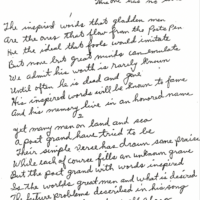 The inspired words that gladden men
Are the ones that flow from the Poets Pen
He the ideal that fools would imitate
But none but great minds can emulate
We admit his worth is rarely known
Until often he is dead and gone
His inspired words will be known to fame
And his memory live in an honored name
2
yet many men on land and sea
a poet grand have tried to be
Their simple verse has drawn some praise
While lack of course fills an unknown grave
But the poet grand with words inspired
Is the worlds great men and what is desired
The future problems described in his song